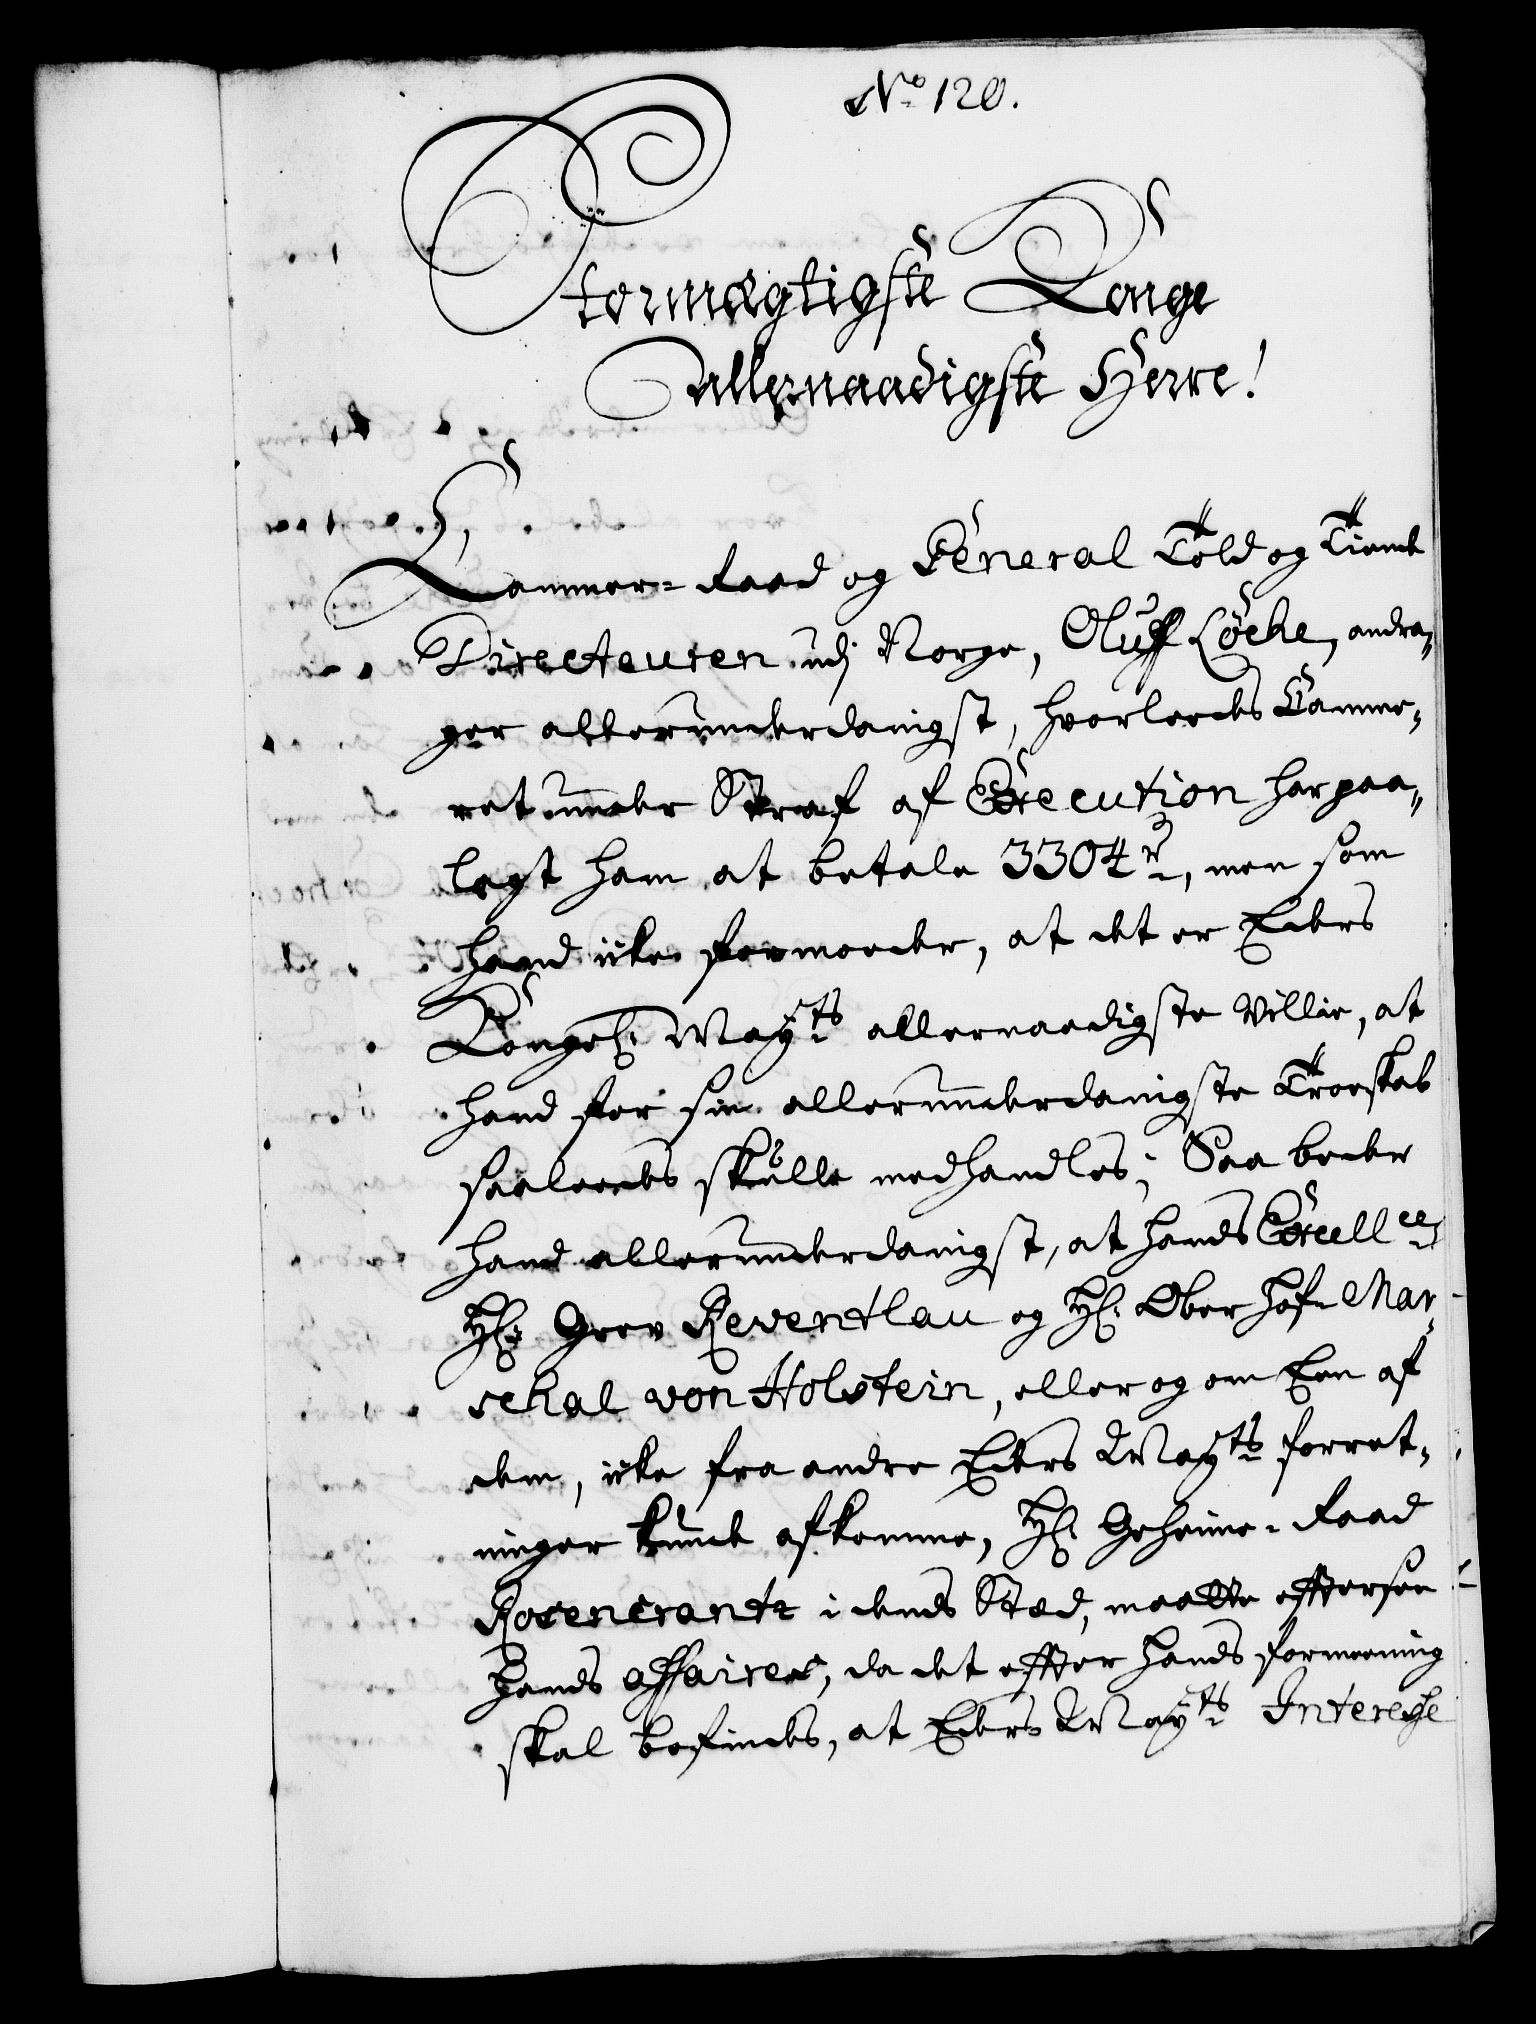 No 120.
Stormægtigste Konge
allernaadigste Herre!
Kammer-Raad og General Told og Tiende
Directeuren udj Norge, Oluff Löche, andra„
ger allerunderdanigst, hvorleedes Camme„
ret under Straf af Execution har paa„
lagt ham at betale 3304 rd, men som
hand iche formoeder, at det er Eders
Kongel: Mayts allernaadigste Villie, at
hand for sin allerunderdanigste Troeskab
saaleedes skulle medhandles; Saa beder
hand allerunderdanigst, at hands Excellce
Hl: Grev Reventlau og Hl: Ober Hof-Mar„
schal von Holstein, eller og om Een af
dem, iche fra andre Eders Mayts forret„
ninger kunde afkomme, Hl: Geheime-Raad
Rosencrantz i dends Stæd, maatte effterser
Hands affaires, da det effter Hands formeening
skal befindes, at Eders Mayts Interesse